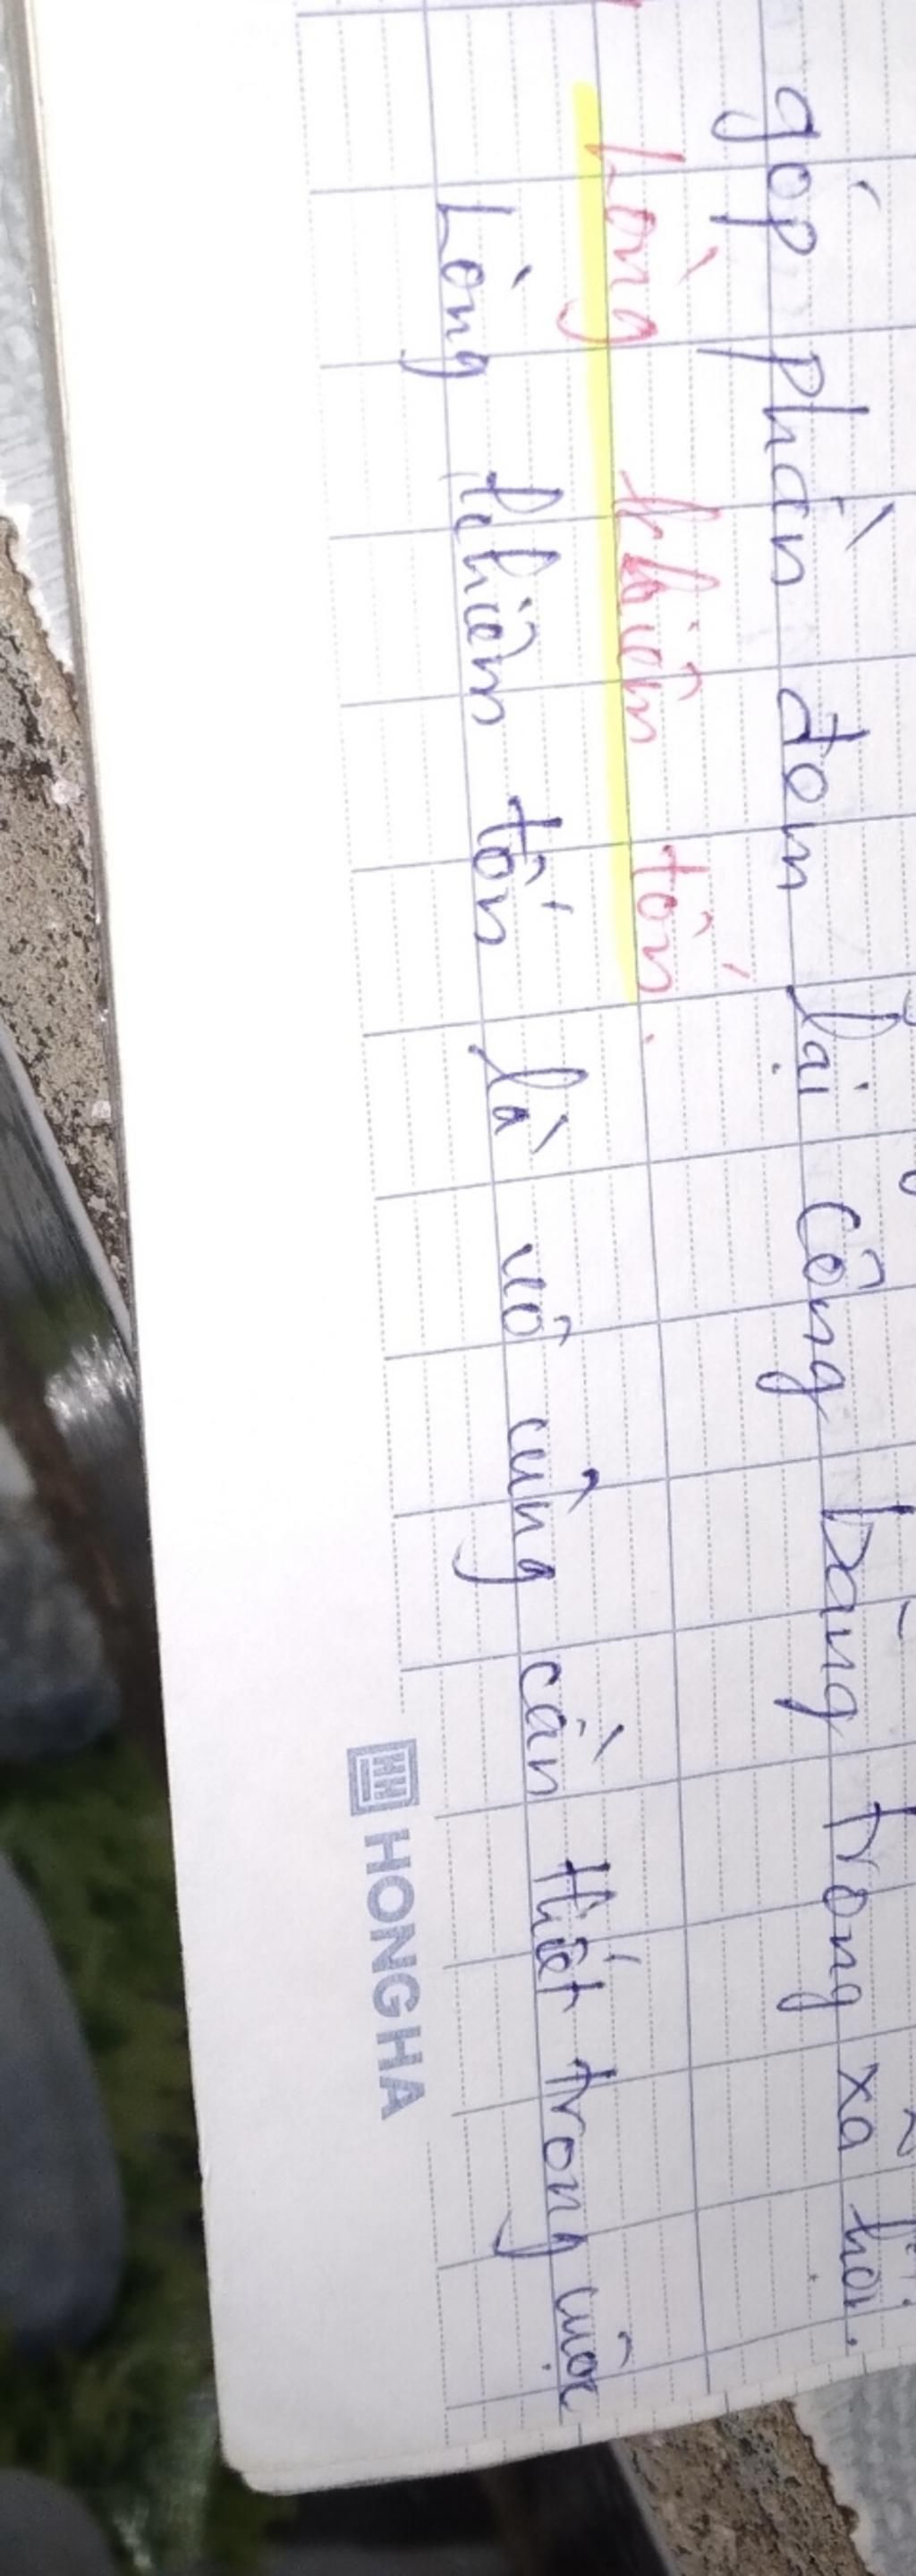 góp phần đem lại công bằng trong xã hội.
Lòng khiêm tốn.
Lòng khiêm tốn là vô cùng cần thiết trong cuộc
HONG HA